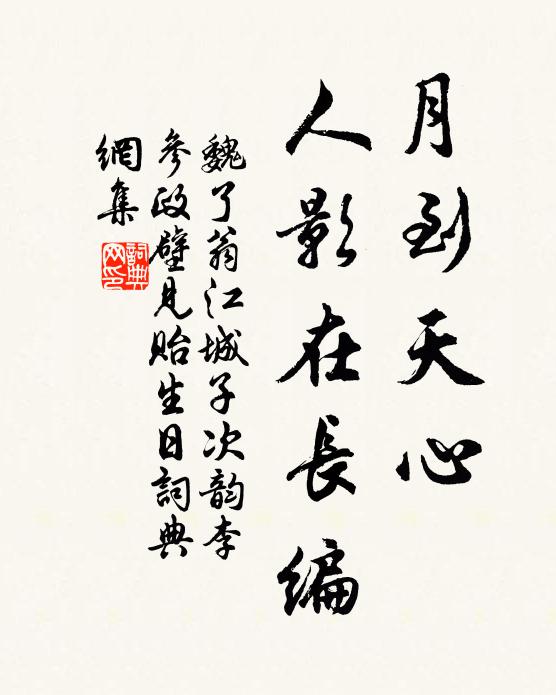 月到天心
人影在長編
魏了翁江城子次韵李
參政壁見貽生日詞典
網集
詞典
网印